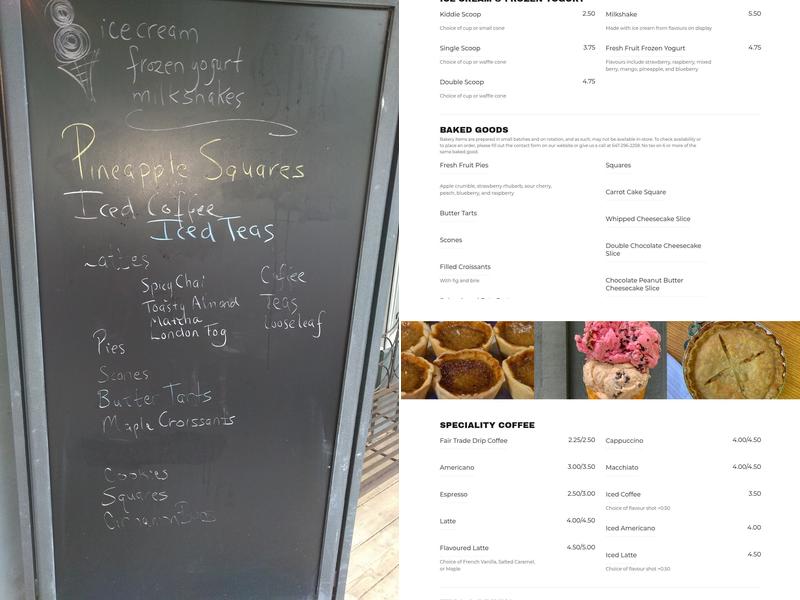 icecream
frozen yogurt
milkshakes
Pineapple Squares
Iced Coffee
Iced Teas
Lattes
Spicy Chai
Toasty Almond
Matcha
London Fog
Coffee
Teas
looseleaf
Pies
Scones
Butter Tarts
Maple Croissants
Cookies
Squares
Cinnamon Buns
ICE CREAM & FROZEN YOGURT
Kiddie Scoop 2.50
Choice of cup or small cone
Single Scoop 3.75
Choice of cup or waffle cone
Double Scoop 4.75
Choice of cup or waffle cone
Milkshake 5.50
Made with ice cream from flavours on display
Fresh Fruit Frozen Yogurt 4.75
Flavours include strawberry, raspberry, mixed
berry, mango, pineapple, and blueberry
BAKED GOODS
Bakery items are prepared in small batches and on rotation, and as such, may not be available in-store. To check availability or
to place an order, please fill out the contact form on our website or give us a call at 647-296-2259. No tax on 6 or more of the
same baked good.
Fresh Fruit Pies
Apple crumble, strawberry rhubarb, sour cherry,
peach, blueberry, and raspberry
Butter Tarts
Scones
Filled Croissants
With fig and brie
Squares
Carrot Cake Square
Whipped Cheesecake Slice
Double Chocolate Cheesecake
Slice
Chocolate Peanut Butter
Cheesecake Slice
SPECIALITY COFFEE
Fair Trade Drip Coffee 2.25/2.50
Americano 3.00/3.50
Espresso 2.50/3.00
Latte 4.00/4.50
Flavoured Latte 4.50/5.00
Choice of French Vanilla, Salted Caramel,
or Maple
Cappuccino 4.00/4.50
Macchiato 4.00/4.50
Iced Coffee 3.50
Choice of flavour shot +0.50
Iced Americano 4.00
Iced Latte 4.50
Choice of flavour shot +0.50